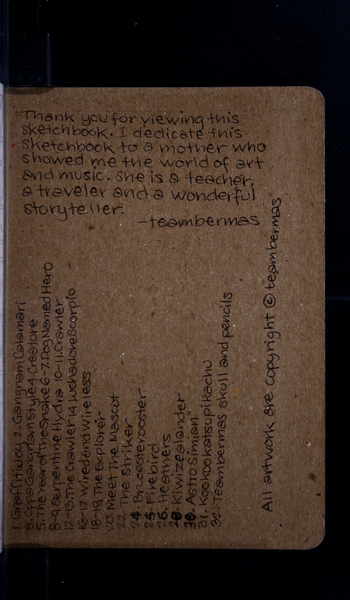 Thank you for viewing this
sketchbook. I dedicate this
sketchbook to a mother who
showed me the world of art
and music. She is a teacher,
a traveler and a wonderful
storyteller.
-teambermas
1. Graffitiboy 2. Gangnam Calamari
3. Opp Gangnam Style 4. Creature
5. The Year of the Snake 6-7. Dog Named Hero
8-9. Serpentine Hydra 10-11. Crawler
12-13. The Crawler 14. Luchadore Scorpio
16-17. Wired and Wireless
18-19. The Explorer
20. Meet the Mascot
22. The Striker
24.
25. Firebird
26. Heathers
28. Kiwizealander
30. Astro Simian
31. Kookookatsupikachu
32. Teambermas skull and pencils
All artwork are copyright © teambermas